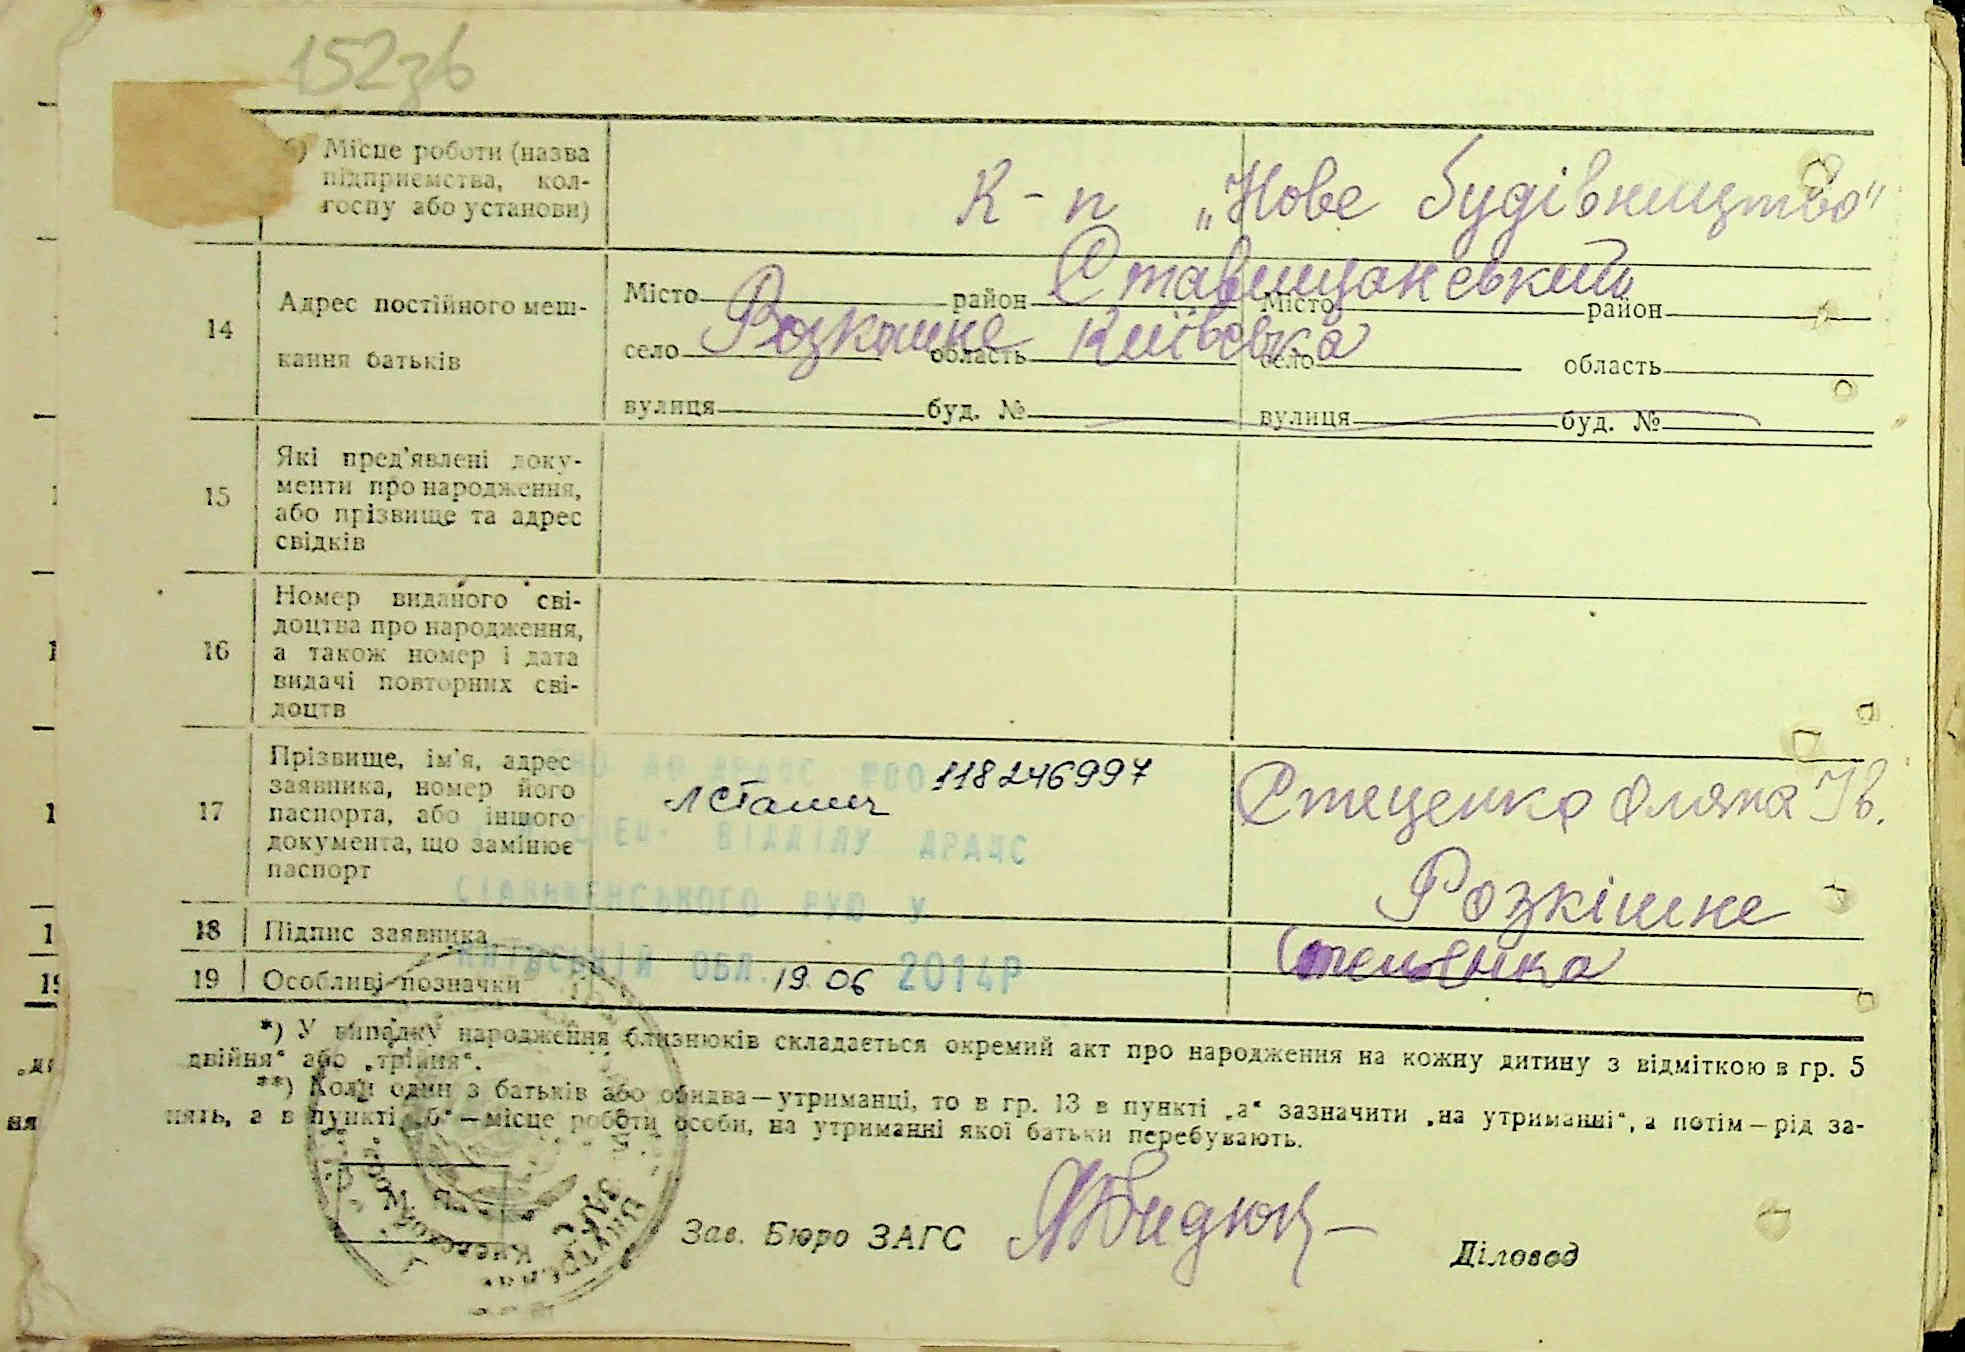 152зв
б) Місце роботи (назва
підприємства, кол-
госпу або установи)
К-п „Нове будівництво"
14
Адрес постійного меш-
кання батьків
Місто район Ставищанський
село Розкошне область Київська
вулиця буд. №
Місто район
село область
вулиця буд. №
15
Які пред'явлені доку-
менти про народження,
або прізвище та адрес
свідків
16
Номер виданого сві-
доцтва про народження,
а також номер і дата
видачі повторних сві-
доцтв
17
Прізвище, ім'я, адрес
заявника, номер його
паспорта, або іншого
документа, що замінює
паспорт
118246997
Стеценко Ів.
Розкішне
ВІДДІЛУ ДРАЦС
РУЮ У
18
Підпис заявника
Стеценко
19
Особливі позначки
ОБЛ. 19.06 2014Р
*) У випадку народження близнюків складається окремий акт про народження на кожну дитину з відміткою в гр. 5
двійня" або „трійня".
**) Коли один з батьків або обидва—утриманці, то в гр. 13 в пункті „а" зазначити „на утриманні", а потім—рід за-
нять, а в пункті „б"—місце роботи особи, на утриманні якої батьки перебувають.
Зав. Бюро ЗАГС
Діловод